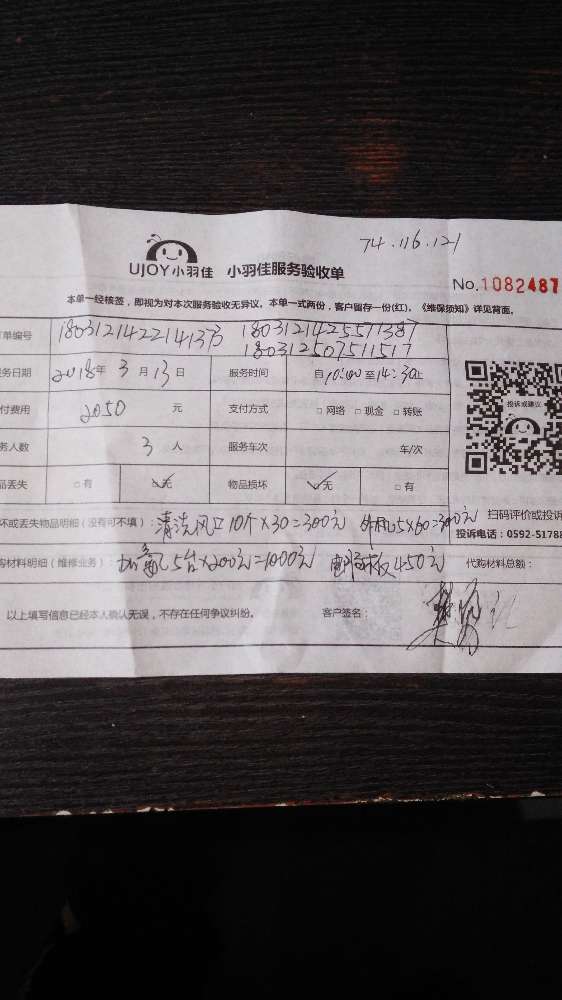 74.116.121
UJOY小羽佳 小羽佳服务验收单
No.1082487
本单一经核签，即视为对本次服务验收无异议。本单一式两份，客户留存一份(红)。《维保须知》详见背面。
单编号 1803121425571387
180312507511517
务日期 2018年 3 月 13 日 服务时间 自10:00至14:30止
投诉或建议
付费用 2050 元 支付方式 □ 网络 □ 现金 □ 转账
务人数 3 人 服务车次 车/次
品丢失 □ 有 无 物品损坏 无 □ 有
坏或丢失物品明细（没有可不填）：清洗风口10个×30=300元 外机5×60=300元
扫码评价或投诉
投诉电话：0592-51788
购材料明细（维修业务）：加氟5台×200元=1000元 电脑板450元 代购材料总额：
以上填写信息已经本人确认无误，不存在任何争议纠纷。 客户签名：